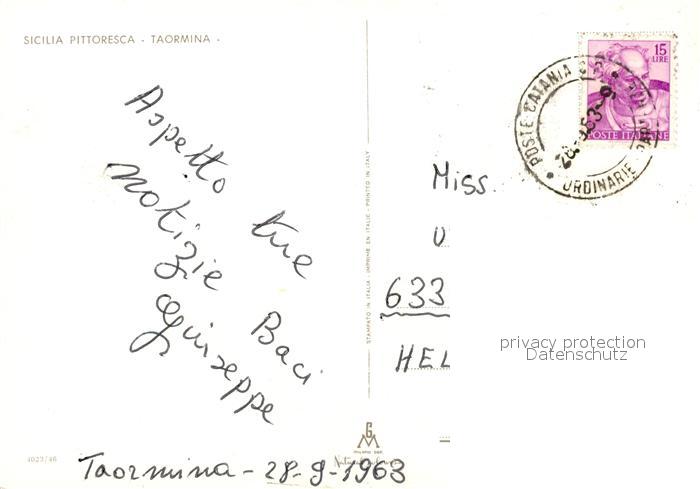 SICILIA PITTORESCA - TAORMINA -
Aspetto tue
notizie Baci
Giuseppe
Taormina - 28-9-1963
4023/46
STAMPATO IN ITALIA - IMPRIMÉ EN ITALIE - PRINTED IN ITALY
MILANO
15
LIRE
POSTE ITALIANE
POSTE CATANIA
ORDINARIE
Miss.
U
633
HEL
privacy protection
Datenschutz